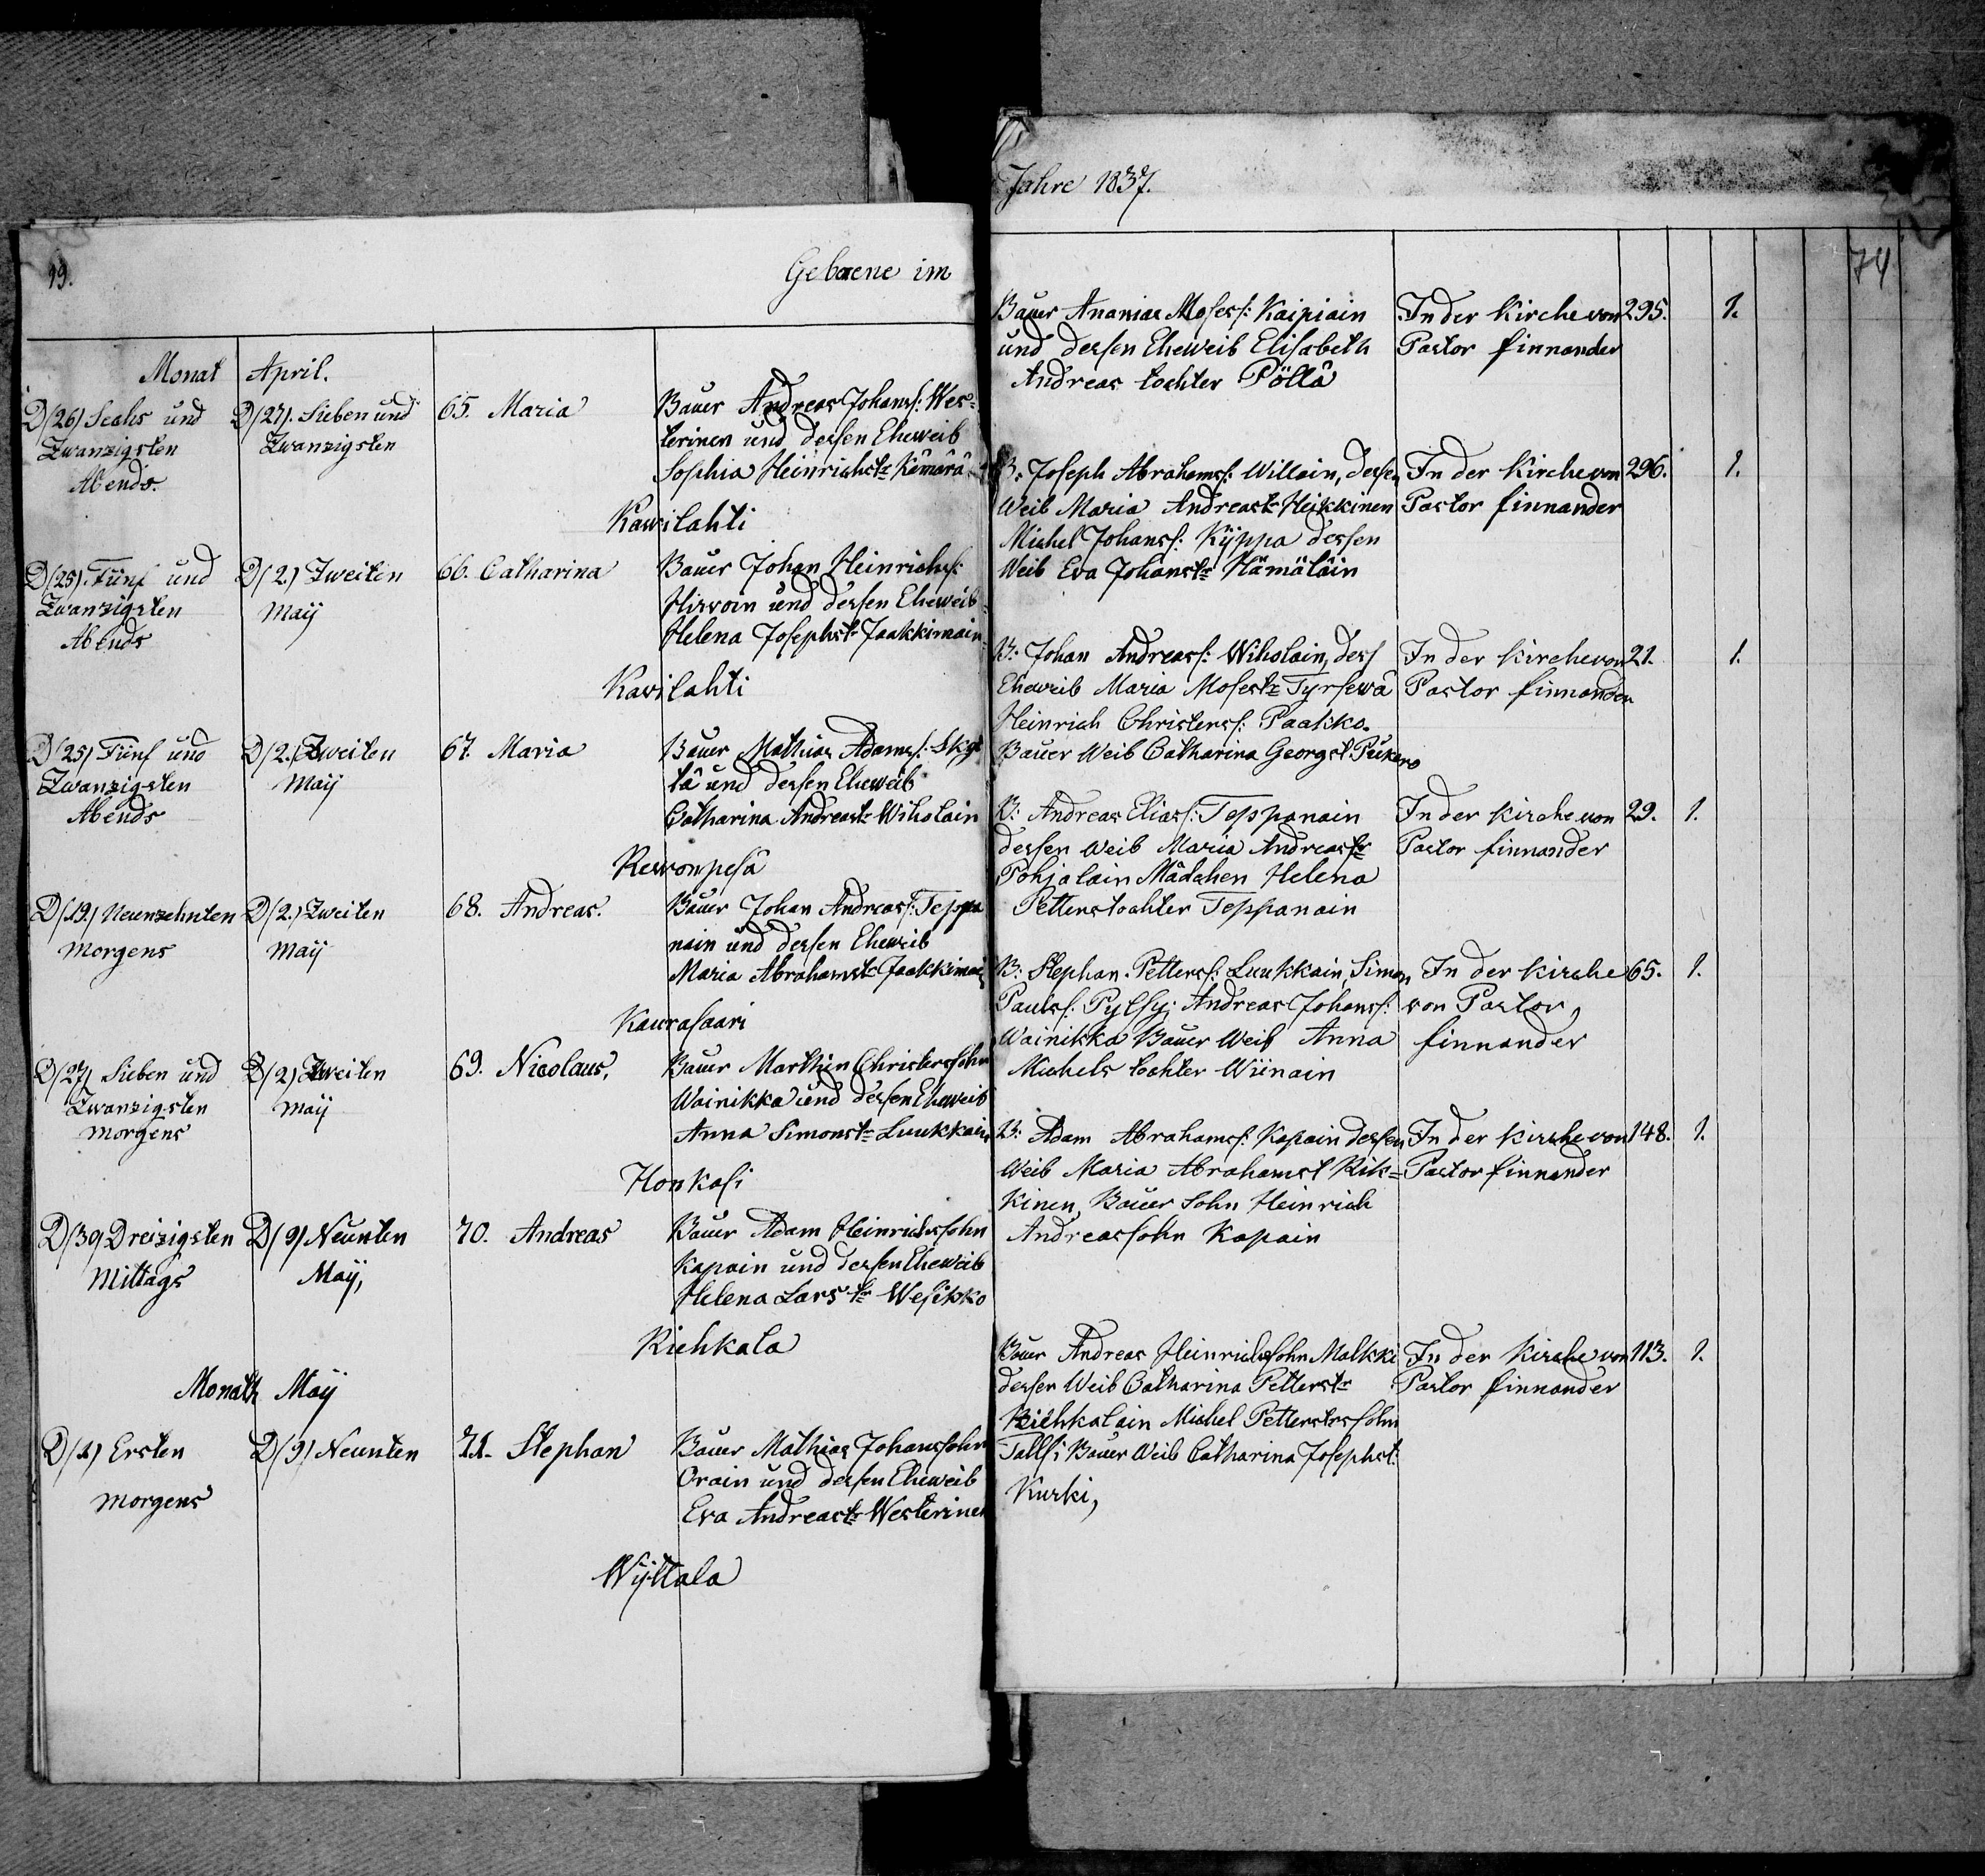 19.
Geborene im
Monat April.
D/26/ Sechs und
Zwanzigsten
Abends.
D/27/. Sieben und
Zwanzigsten
65. Maria
Bauer Andreas Johanss: Wes=
terinen und dessen Eheweib
Sophia Heinrichstr Kämärä
Kawilahti
D/25/. Fünf und
Zwanzigsten
Abends
D/2./ Zweiten
Maij
66. Catharina
Bauer Johan Heinrichss:
Hirvoin und dessen Eheweib
Helena Josephstr Jaakkimain
Kavilahti
D/25/ Fünf und
Zwanzigsten
Abends
D/2./ Zweiten
Maij
67. Maria
Bauer Mathias Adamss:
tä und dessen Eheweib
Catharina Andreastr Wiholain
Rewonpesä
D/19./ Neunzehnten
Morgens
D/2./ Zweiten
Maij
68. Andreas.
Bauer Johan Andreass: Teppa
nain und dessen Eheweib
Maria Abrahamstr Jaakkimai
Kaurasaari
D/27/ Sieben und
Zwanzigsten
Morgens
D/2/ Zweiten
Maij
69. Nicolaus,
Bauer Marthin Christerssohn
Wainikka und dessen Eheweib
Anna Simonstr Luukkain
Honkasi
D/30/ Dreizigsten
Mittags
D/9/ Neunten
Maij,
70. Andreas
Bauer Adam Heinrichssohn
Kapain und dessen Eheweib
Helena Larstr Wesikko
Riehkala
Monath Maij
D/1/ Ersten
Morgens
D/9/ Neunten
71. Stephan
Bauer Mathias Johanssohn
Orain und dessen Eheweib
Eva Andreastr Westerinen
Wijttala
Jahre 1837.
74
Bauer Ananias Mosess: Kaipiain
und dessen Eheweib Elisabeth
Andreas tochter Pöllä
In der Kirche von
Pastor Finnander
295. 1.
B: Joseph Abrahamss: Willain, dessen
Weib Maria Andreastr Heikkinen
Michel Johanss: Kyppa dessen
Weib Eva Johanstr Hämäläin
In der Kirche von
Pastor Finnander
296. 1.
B: Johan Andreass: Wiholain, dess
Eheweib Maria Mosestr Tyrsewä
Heinrich Christerss: Paakko.
Bauer Weib Catharina Georgst: Pukero
In der Kirche von
Pastor Finnander
21. 1.
B: Andreas Eliass: Teppanain
dessen Weib Maria Andreastr
Pohjalain Mädchen Helena
Petterstochter Teppanain
In der Kirche von
Pastor Finnander
29. 1.
B: Stephan Petterss: Luukkain, Simon
Paulss: Pylsy; Andreas Johanss:
Wainikka Bauer Weib Anna
Michels tochter Wiinain
In der Kirche
von Pastor,
Finnander
65. 1.
B: Adam Abrahamss: Kapain dessen
Weib Maria Abrahamst Rik=
kinen, Bauer Sohn Heinrich
Andreassohn Kapain
In der Kirche von
Pastor Finnander
148. 1.
Bauer Andreas Heinrichssohn Malkki
dessen Weib Catharina Petterstr
Riehkalain Michel Petterssohn
Tallsi Bauer Weib Catharina Josephst:
Kurki,
In der Kirche von
Pastor Finnander
113. 1.